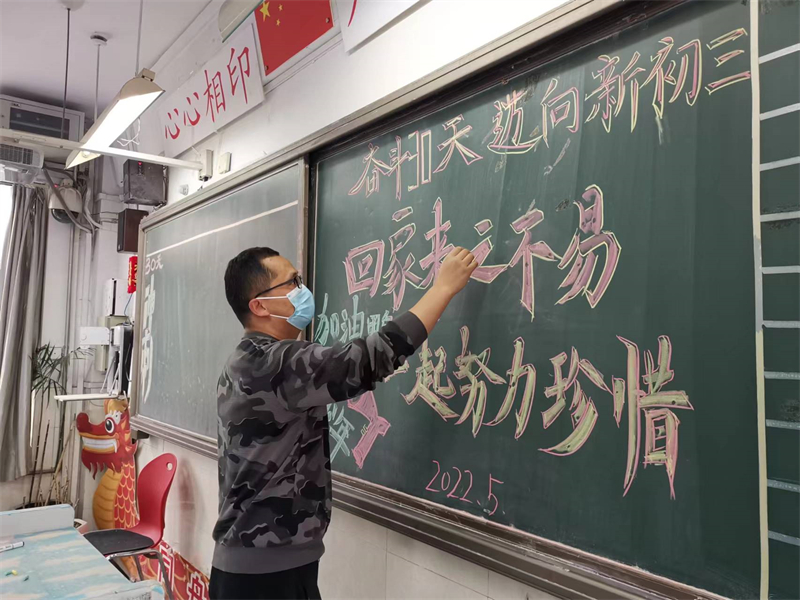 心心相印
奋斗30天 迈向新初三
回家来之不易
加油
一起努力珍惜
2022.5.
30天